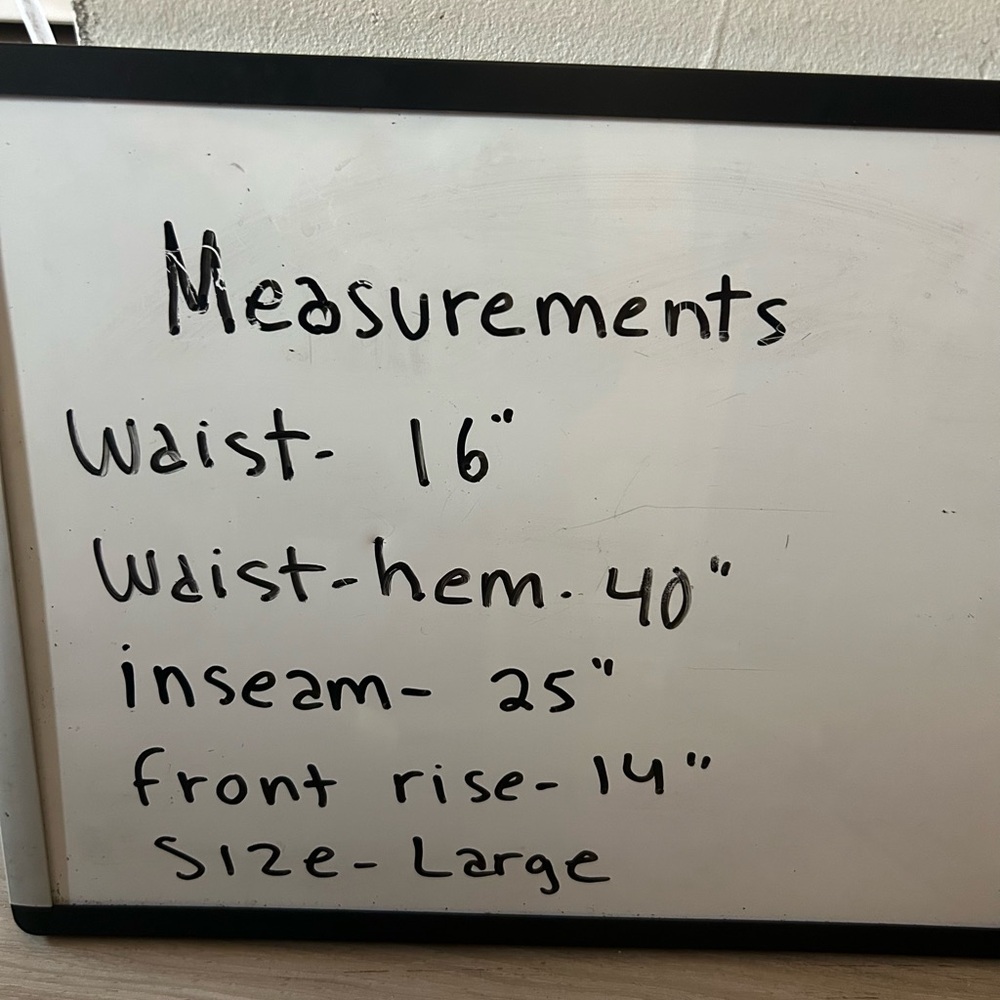 Measurements
Waist- 16"
Waist-hem- 40"
inseam- 25"
front rise- 14"
Size- Large